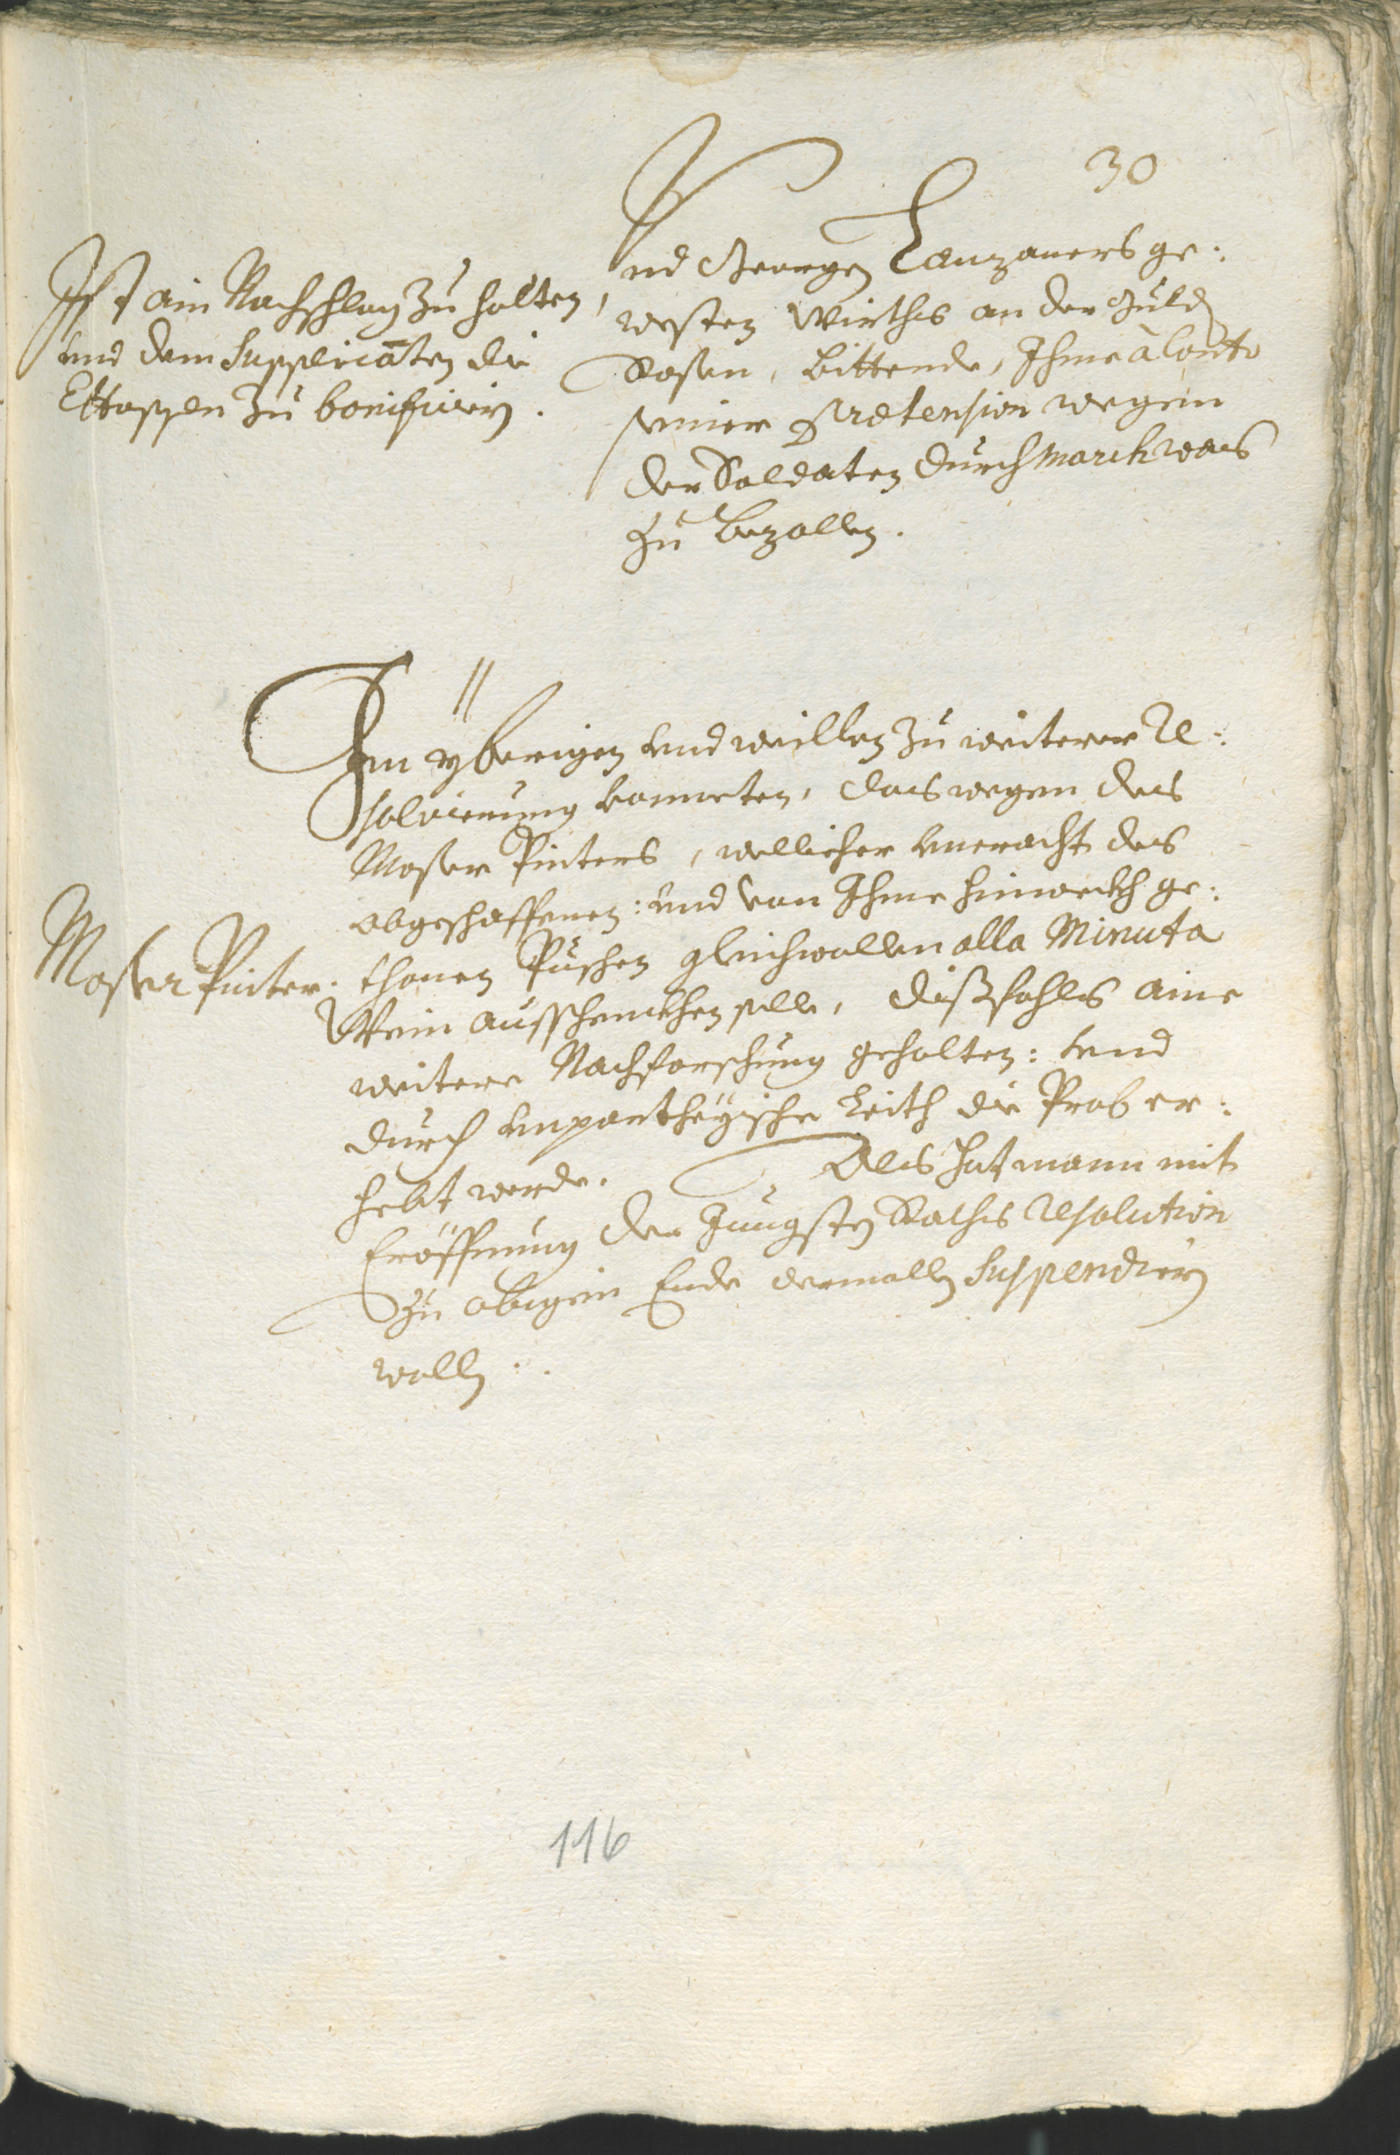 30
Ist ain Nachschlag zu halten,
vnd dem Supplicanten die
Ettappen zu bonificiern.
Vnd Georgen Lanzaners ge:
westen Wirths an der Guld
Rosen, bittende, Ihme à Conto
seiner Prætension wegen
der Soldaten Durchmarch was
zu bezallen.
Im yberigen vnd weillen zu weiterer Re:
solvierung kometen, das wegen des
Moser Pinters, wellicher vneracht des
abgeschaffenen: vnd von Ihme hinweckh ge:
Moser Pinter.
thonen Puschen gleichwollen alla Minuta
Wein ausschenckhen solle, dißfahls aine
weitere Nachforschung gehalten: vnd
durch vnpartheyische Leith die Prob er:
hebt werde. Als hat mann mit
Eröffnung der Jungsten Raths Resolution
zu obigem Ende dermallen Suspendiern
wollen.
116